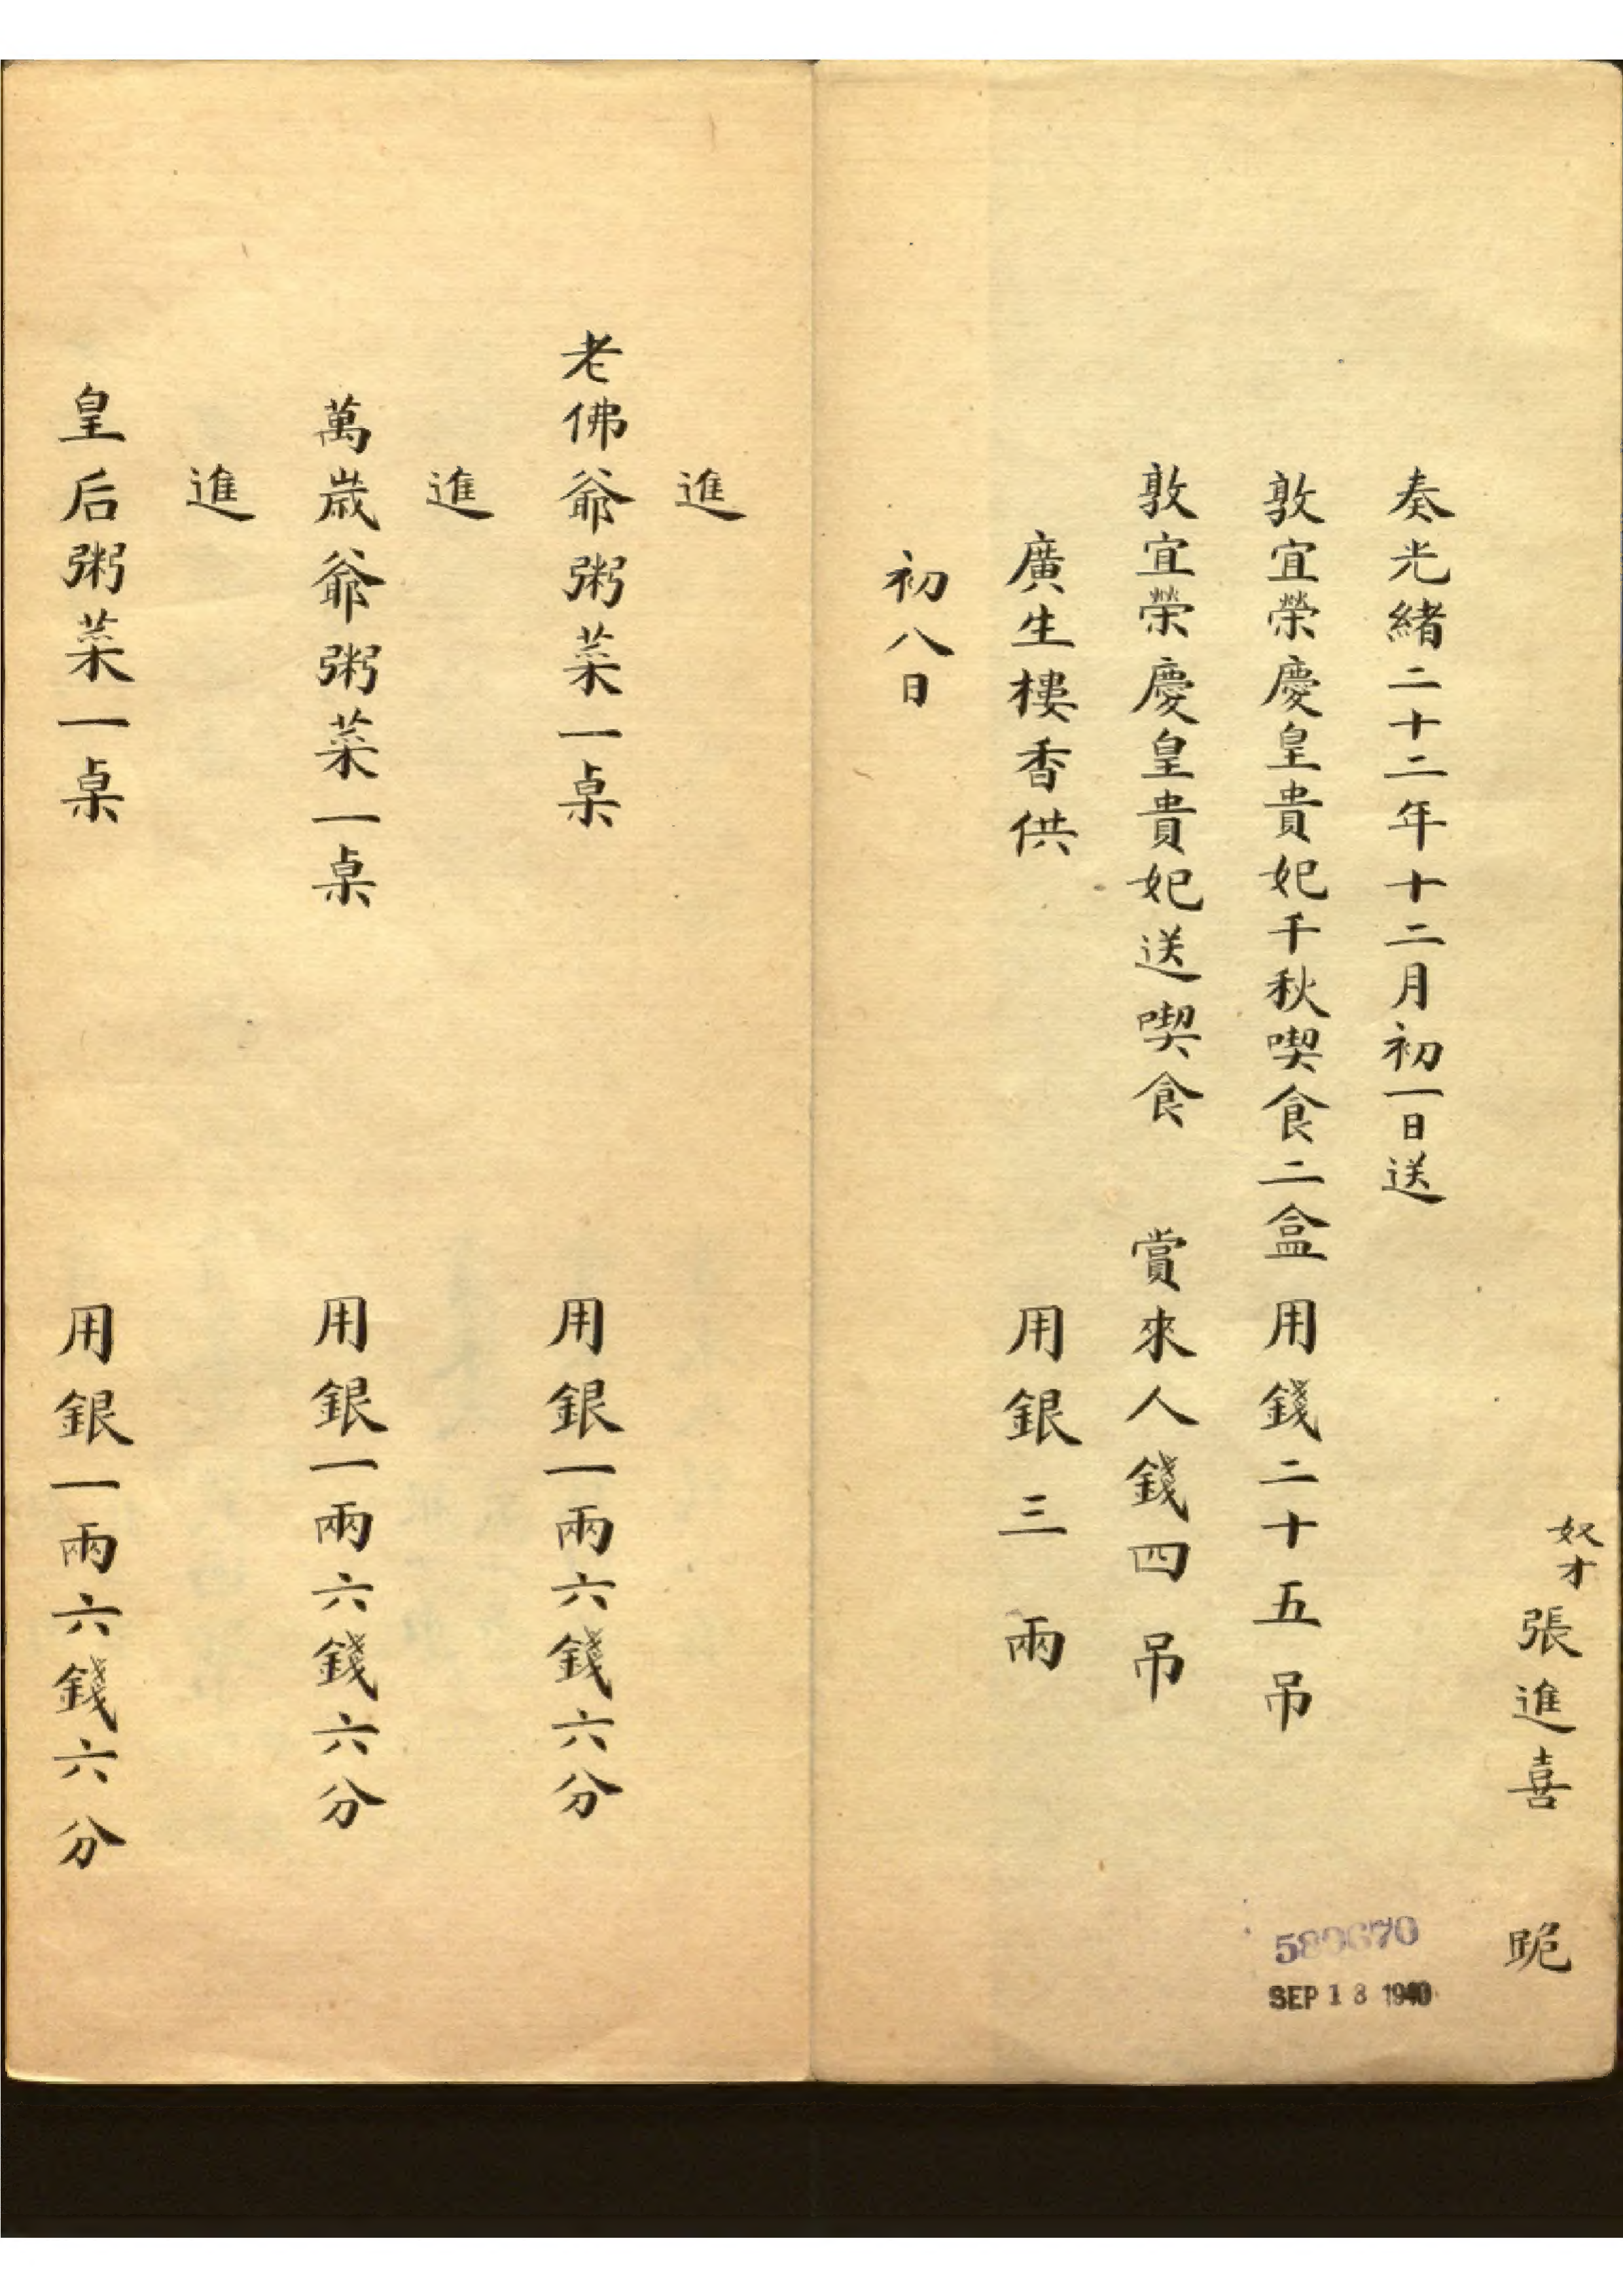 奴才張進喜 跪
奏光緒二十二年十二月初一日送
敦宜榮慶皇貴妃千秋喫食二盒 用錢二十五吊
敦宜榮慶皇貴妃送喫食 賞來人錢四吊
廣生樓香供 用銀三兩
初八日
進
老佛爺粥菜一桌 用銀一兩六錢六分
進
萬歲爺粥菜一桌 用銀一兩六錢六分
進
皇后粥菜一桌 用銀一兩六錢六分
SEP 13 1940